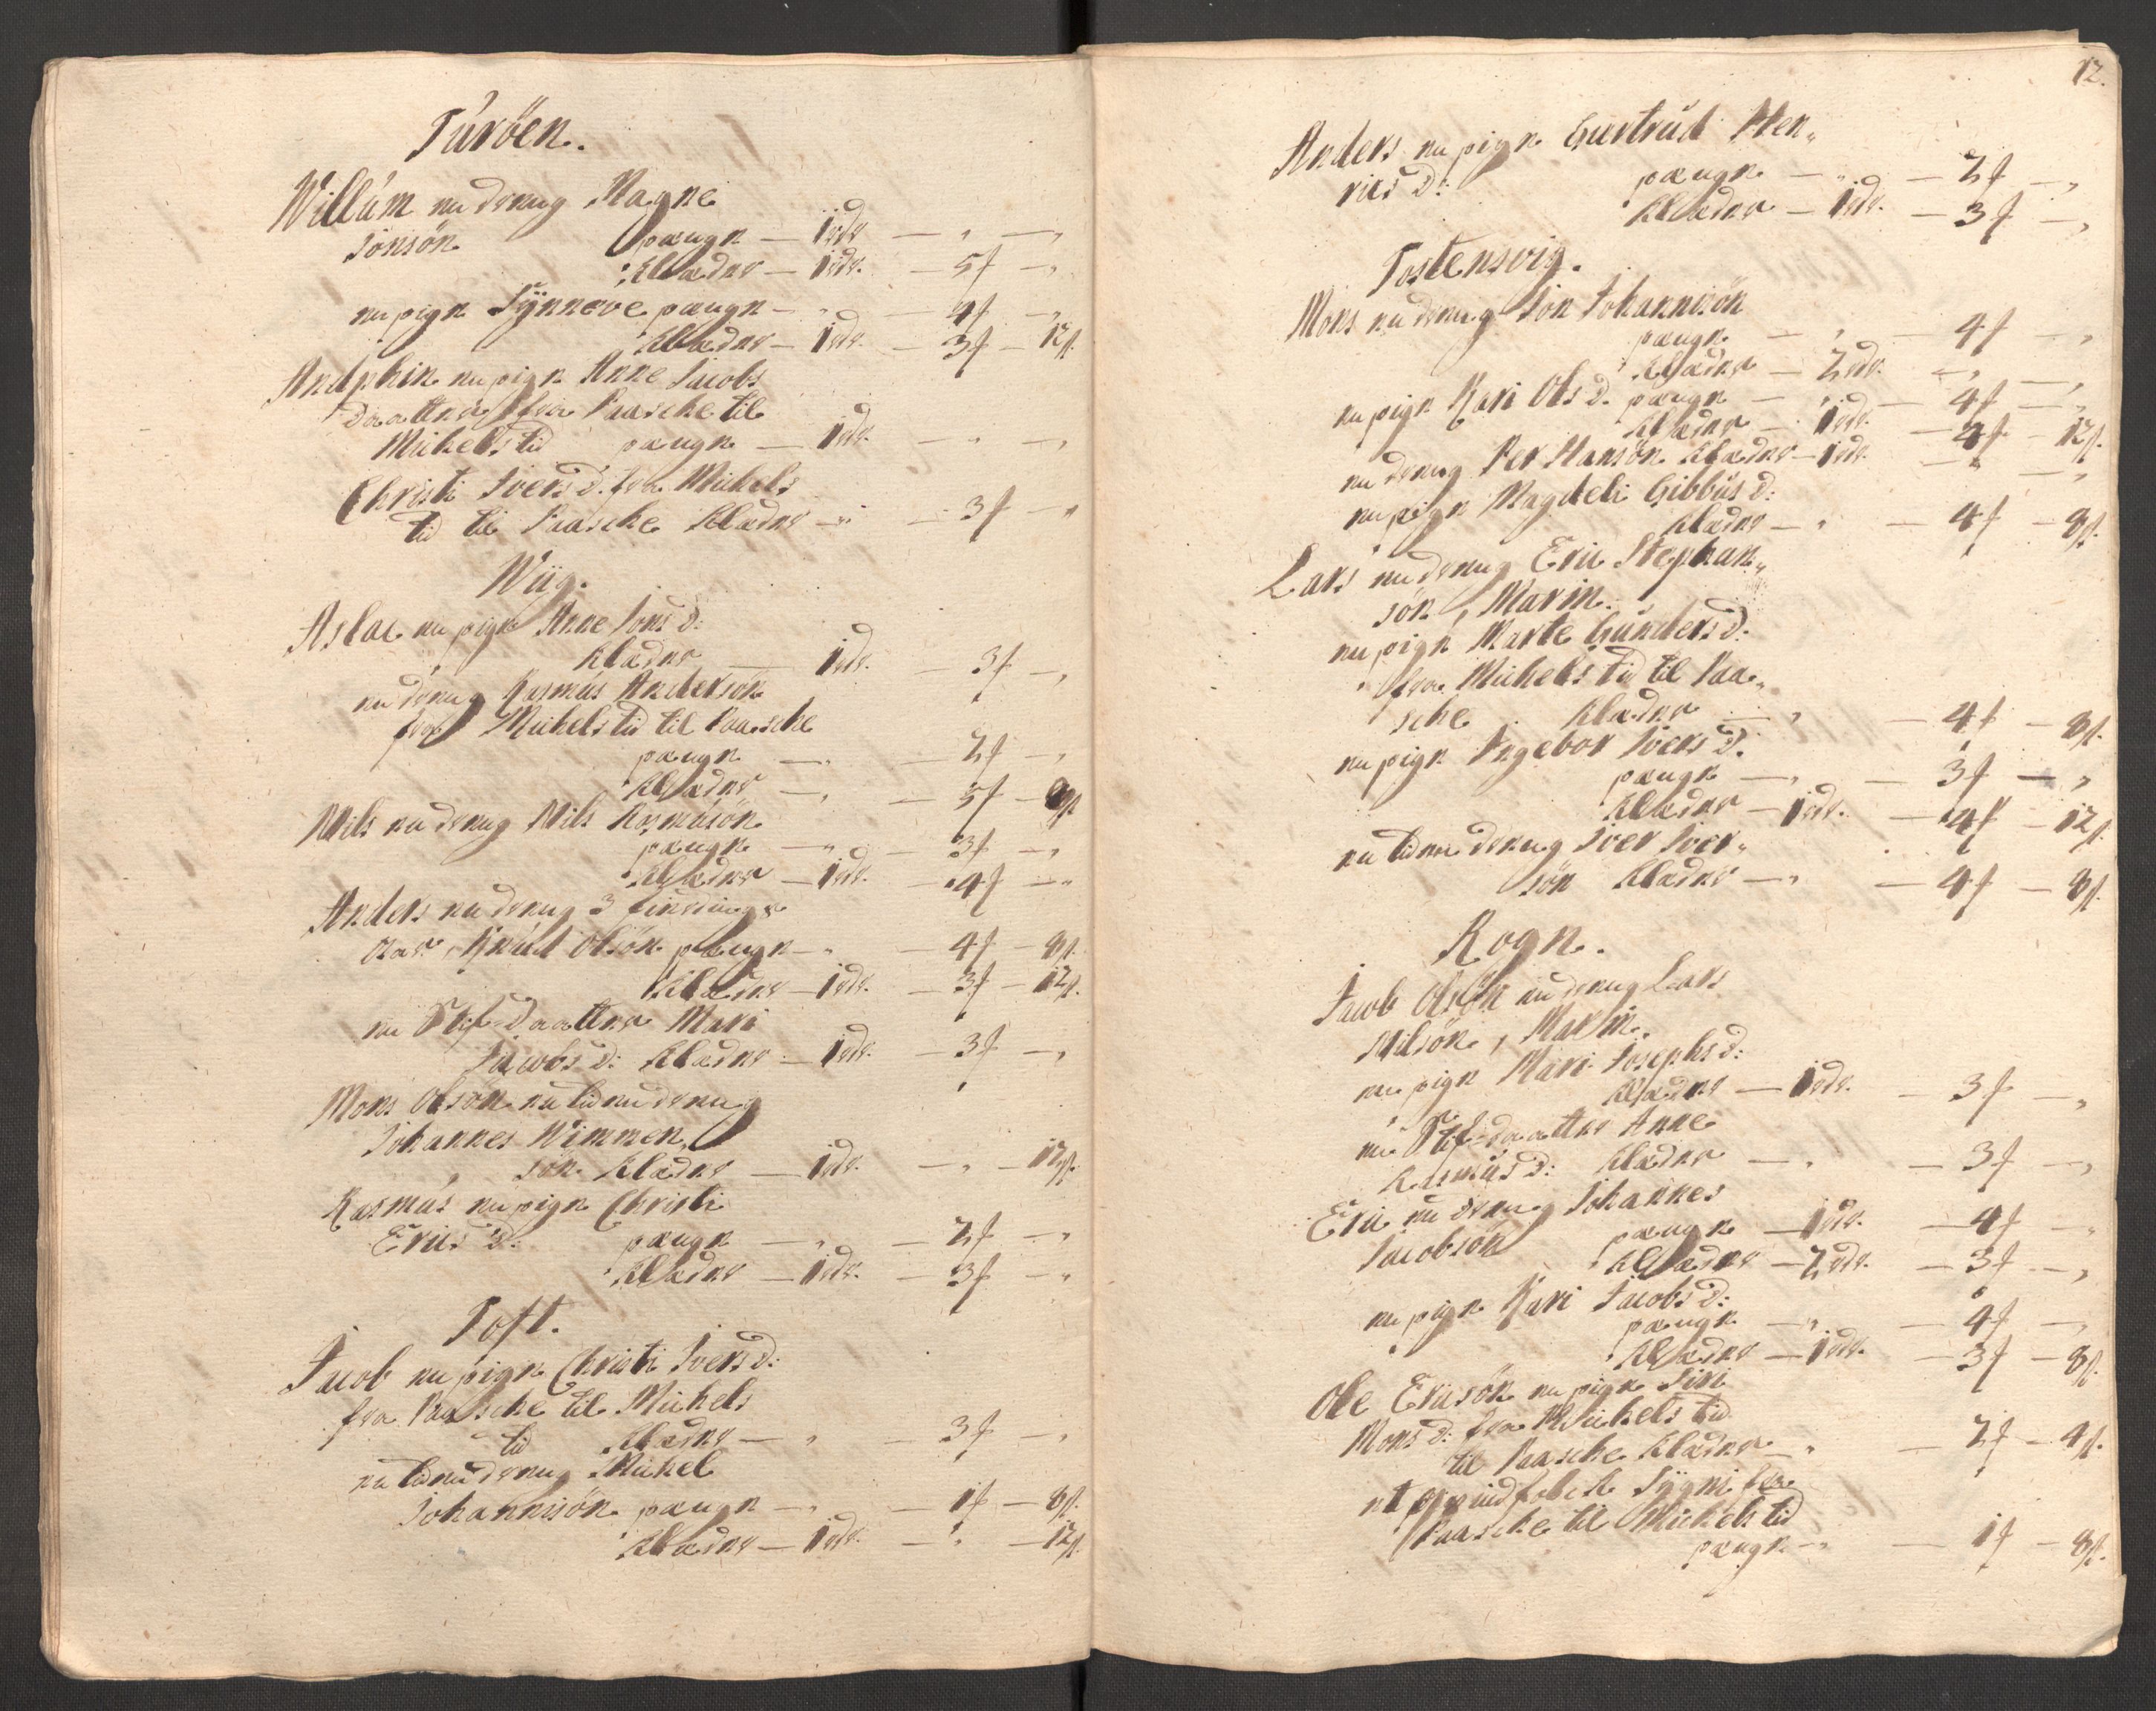 Túröen.
Willúm en dreng Magne
Jonsön pænge — 1 rdr — „ — „
Klæder — 1 rdr. — 5 ƒ — „
en pige Sÿnneve pænge — „ — 4 ƒ — „
Klæder — 1 rdr. — 3 ƒ — 12 ß.
Andphin en pige Anne Jacobs
daatter fra Paasche til
Michels tid pænge — 1 rdr. — „ — „
Christi Ivers d. fra Michels
tid til Paasche Klæder — „ — 3 ƒ — „
Wiig.
Aslac en pige Anne Jons d:
Klæder — 1 rdr. — 3 ƒ — „
en dreng Rasmús Andersön
fra Michels tid til Paasche
pænge — „ — 2 ƒ — „
Klæder — „ — 5 ƒ — 8 ß
Nils en dreng Nils Rasmúsön
pænge — „ — 3 ƒ — „
Klæder — 1 rdr. — 4 ƒ — „
Anders en dreng 3 fierdinge
aar, Knúd Olsön pænge — „ — 4 ƒ — 8 ß.
Klæder — 1 rdr. — 3 ƒ — 12 ß.
en Stif-daatter Mari
Jacobs d: Klæder — 1 rdr. — 3 ƒ — „
Mons Olsön en liden dreng
Johannes Wimmen,
sön Klæder — 1 rdr. — „ — 12 ß.
Rasmús en pige Christi
Erics d: pænge — „ — 2 ƒ — „
Klæder — 1 rdr. — 3 ƒ — „
Toft.
Jacob en pige Christi Ivers d:
fra Paasche til Michels
tid Klæder — „ — 3 ƒ — „
en liden dreng Michel
Johannisön pænge — „ — 1 ƒ — 8 ß.
Klæder — 1 rdr. — „ — 12 ß.
12.
Anders en pige Giertrúd Hen„
rics d: pænge — „ — 2 ƒ — „
Klæder — 1 rdr. — 3 ƒ — „
Tostensvig.
Mons en dreng Jon Johannisön
pænge — „ — 4 ƒ — „
Klæder — 2 rdr. — „ — „
en pige Kari Ols d. pænge — „ — 4 ƒ — „
Klæder — 1 rdr. — 4 ƒ — 12 ß.
en dreng Per Hansön Klæder — 1 rdr. — „ — „
en pige Magdeli Gibbús d:
Klæder — „ — 4 ƒ — 8 ß.
Lars en dreng Eric Stephan„
sön, Marin.
en pige Marte Gúnders d:
fra Michels tid til Paa„
sche Klæder — „ — 4 ƒ — 8 ß.
en pige Ingebor Ivers d.
pænge — „ — 3 ƒ — „
Klæder — 1 rdr. — 4 ƒ — 12 ß.
en liden dreng Iver Iver„
sön Klæder — „ — 4 ƒ — 8 ß.
Rogn.
Jacob Olsön en dreng Lars
Nilsön, Marin.
en pige Mari Josephs d:
Klæder — 1 rdr. — 3 ƒ — „
en Stif-daatter Anne
Rasmús d: Klæder — „ — 3 ƒ — „
Eric en dreng Johannes
Jacobsön pænge — 1 rdr. — 4 ƒ — „
Klæder — 2 rdr. — 3 ƒ — „
en pige Kari Jacobs d:
pænge — „ — 4 ƒ — „
Klæder — 1 rdr. — 3 ƒ — 8 ß.
Ole Ericsön en pige Siri
Mons d: fra Michels tid
til Paasche Klæder — „ — 2 ƒ — 4 ß.
Sÿgni fra
Paasche til Michels tid
pænge — „ — 1 ƒ — 8 ß.